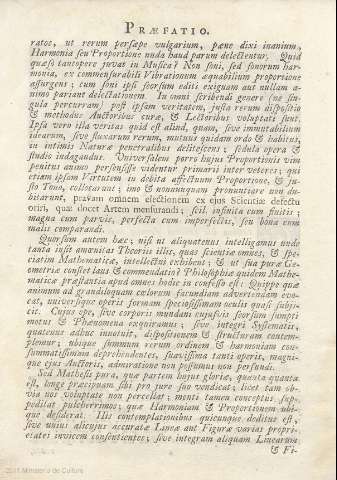 PRÆFATIO.
ratos, ut rerum persæpe vulgarium, pæne dixi inanium,
Harmonia seu Proportione nuda haud parum delectentur. Quid
quæso tantopere juvat in Musica? Non soni, sed sonorum har-
monia, ex commensurabili Vibrationum æquabilium proportione
assurgens; cum soni ipsi seorsum editi exiguam aut nullam a-
nimo pariant delectationem. In omni scribendi genere (ne sin-
gula percurram) post ipsam veritatem, justa rerum dispositio
& methodus Auctoribus curæ, & Lectoribus voluptati sunt.
Ipsa vero illa veritas quid est aliud, quam, sive immutabilium
idearum, sive fluxarum rerum, mutuus quidam ordo & habitus,
in intimis Naturæ penetralibus delitescens; sedula opera &
studio indagandus. Universalem porro hujus Proportionis vim
penitus animo perspexisse videntur primarii inter veteres; qui
etiam ipsam Virtutem in debita affectuum Proportione, & ju-
sto Tono, collocarunt; imo & nonnunquam pronuntiare non du-
bitarunt, pravam omnem electionem ex ejus Scientiæ defectu
oriri, quæ docet Artem mensurandi; scil. infinita cum finitis;
magna cum parvis, perfecta cum imperfectis, seu bona cum
malis comparandi.
Quorsum autem hæc; nisi ut aliquatenus intelligamus unde
tanta insit amœnitas Theoriis illis, quas scientiæ omnes, & spe-
ciatim Mathematicæ, intellectui exhibent; & ut sua puræ Ge-
ometriæ constet laus & commendatio? Philosophiæ quidem Mathe-
maticæ præstantia apud omnes hodie in confesso est: Quippe quæ
animum ad grandiloquam cælorum facundiam advertendam evo-
cat, universique operis formam speciosissimam oculis quasi subji-
cit. Cujus ope, sive corporis mundani cujusvis seorsim sumpti
motus & Phænomena exquiramus; sive integri Systematis,
quatenus adhuc innotuit, dispositionem & structuram contem-
plemur; ubique summum rerum ordinem & harmoniam con-
summatissimam deprehendentes, suavissima tanti operis, magni-
que ejus Auctoris, admiratione non possumus non perfundi.
Sed Mathesis pura, quæ partem hujus gloriæ, quanta quanta
est, longe præcipuam sibi pro jure suo vendicat; licet tam ob-
via nos voluptate non percellat; menti tamen conceptus sup-
peditat pulcherrimos; quæ Harmoniam & Proportionem ubi-
que desiderat. Illis contemplationibus quicunque deditus est,
sive unius alicujus accuratæ Lineæ aut Figuræ varias propri-
etates invicem consentientes; sive integram aliquam Linearum
& Fi-
2011 Ministerio de Cultura